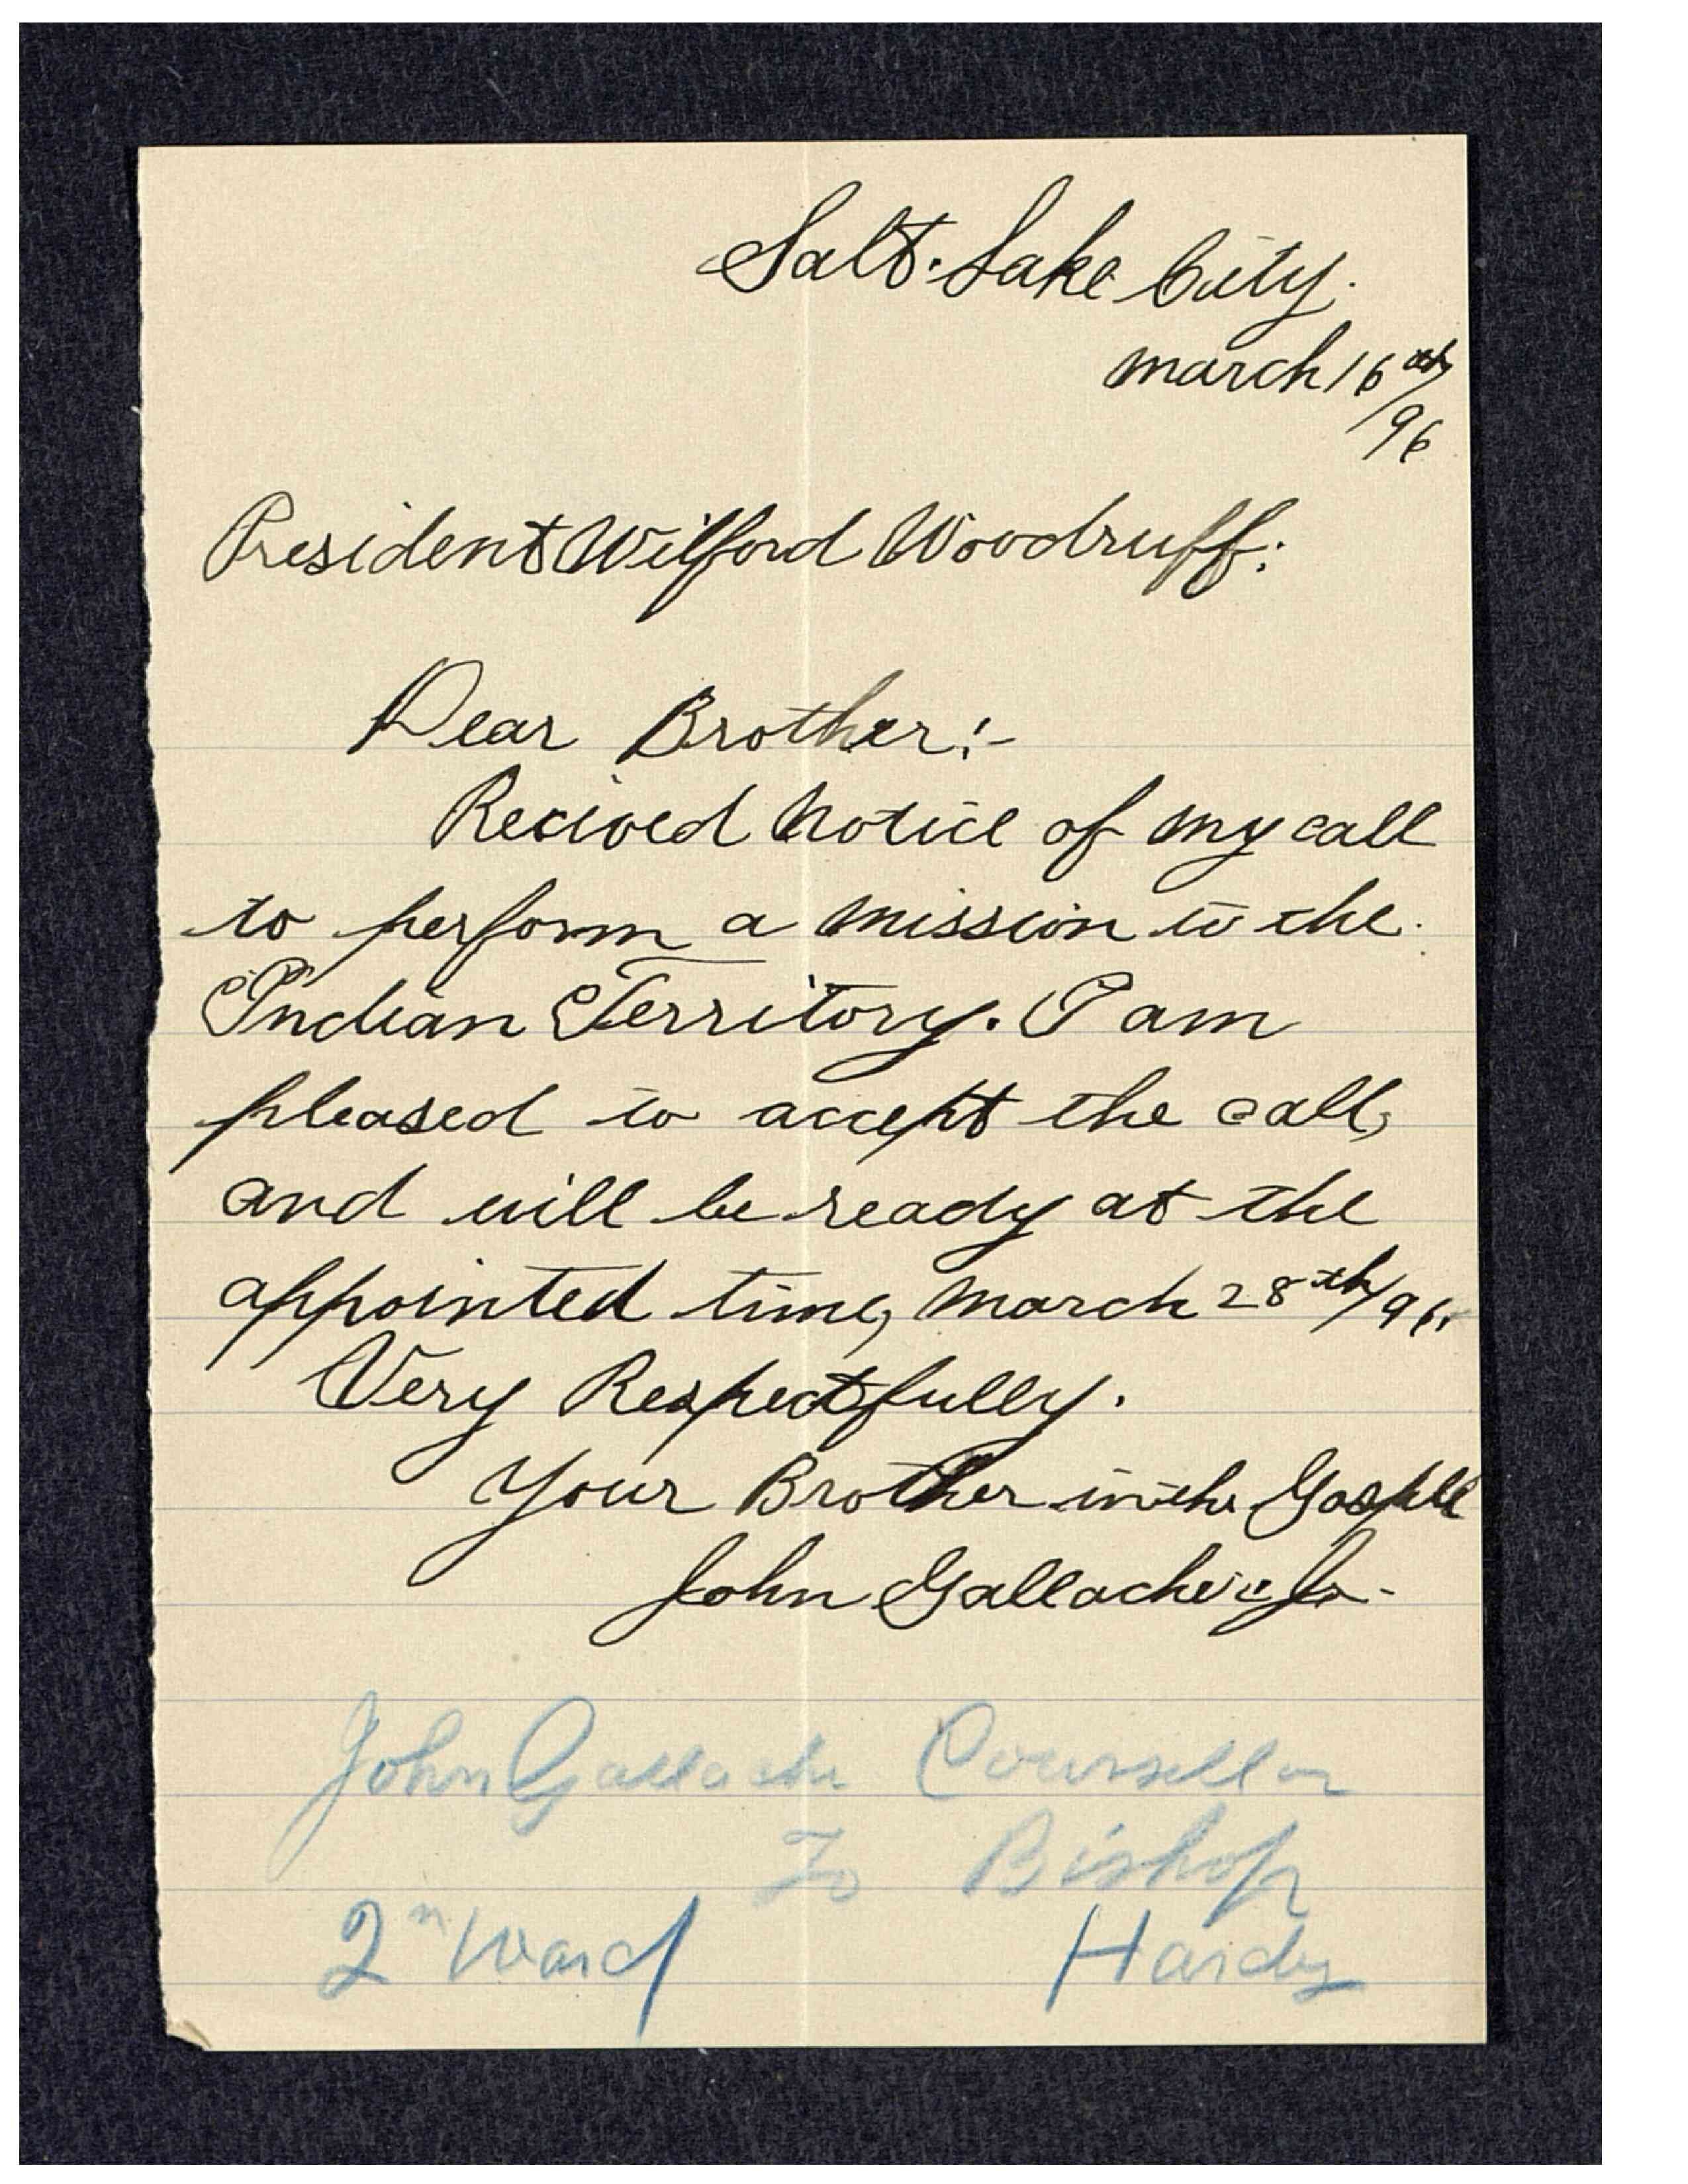 Salt. Lake City.
March 16th/
96
President Wilford Woodruff:
Dear Brother:-
Recived notice of my call
to perform a mission to the
Indian Territory. I am
pleased to accept the call,
and will be ready at the
appointed time, March 28th/96.
Very Respectfully.
Your Brother in the Gospel
John Gallacher Jr-
John Gallacher Counsellor
To Bishop
2n Ward Hardy